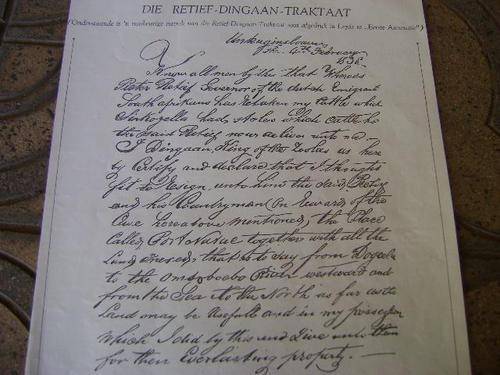 DIE RETIEF-DINGAAN-TRAKTAAT
(Onderstaande is 'n noukeurige afdruk van die Retief-Dingaan-Traktaat soos afgedruk in Leyds se „Eerste Annexatie")
Umkunginsloave
the 4th February
1838
Know all men by this that Whereas
Pieter Retief Governor of the dutch Emigrant
South Afrikans has Retaken my Cattle which
Sinkonyella had stolen which cattle he
the said Retief now deliver unto me —
I Dingaan, King of the Zoolas as here
by Certify and declare that I thought
fit to Resign unto him the said Retief
and his Countryman (on Reward of the
Case hereabove mentioned) the Place
Called Port Natal together with all the
Land annexed that is to say from Dogela
to the Omsoboebo River westward and
from the Sea to the North as far as the
Land may be Usefull and in my possession
Which I did by this and Give unto them
for their Everlasting property. —